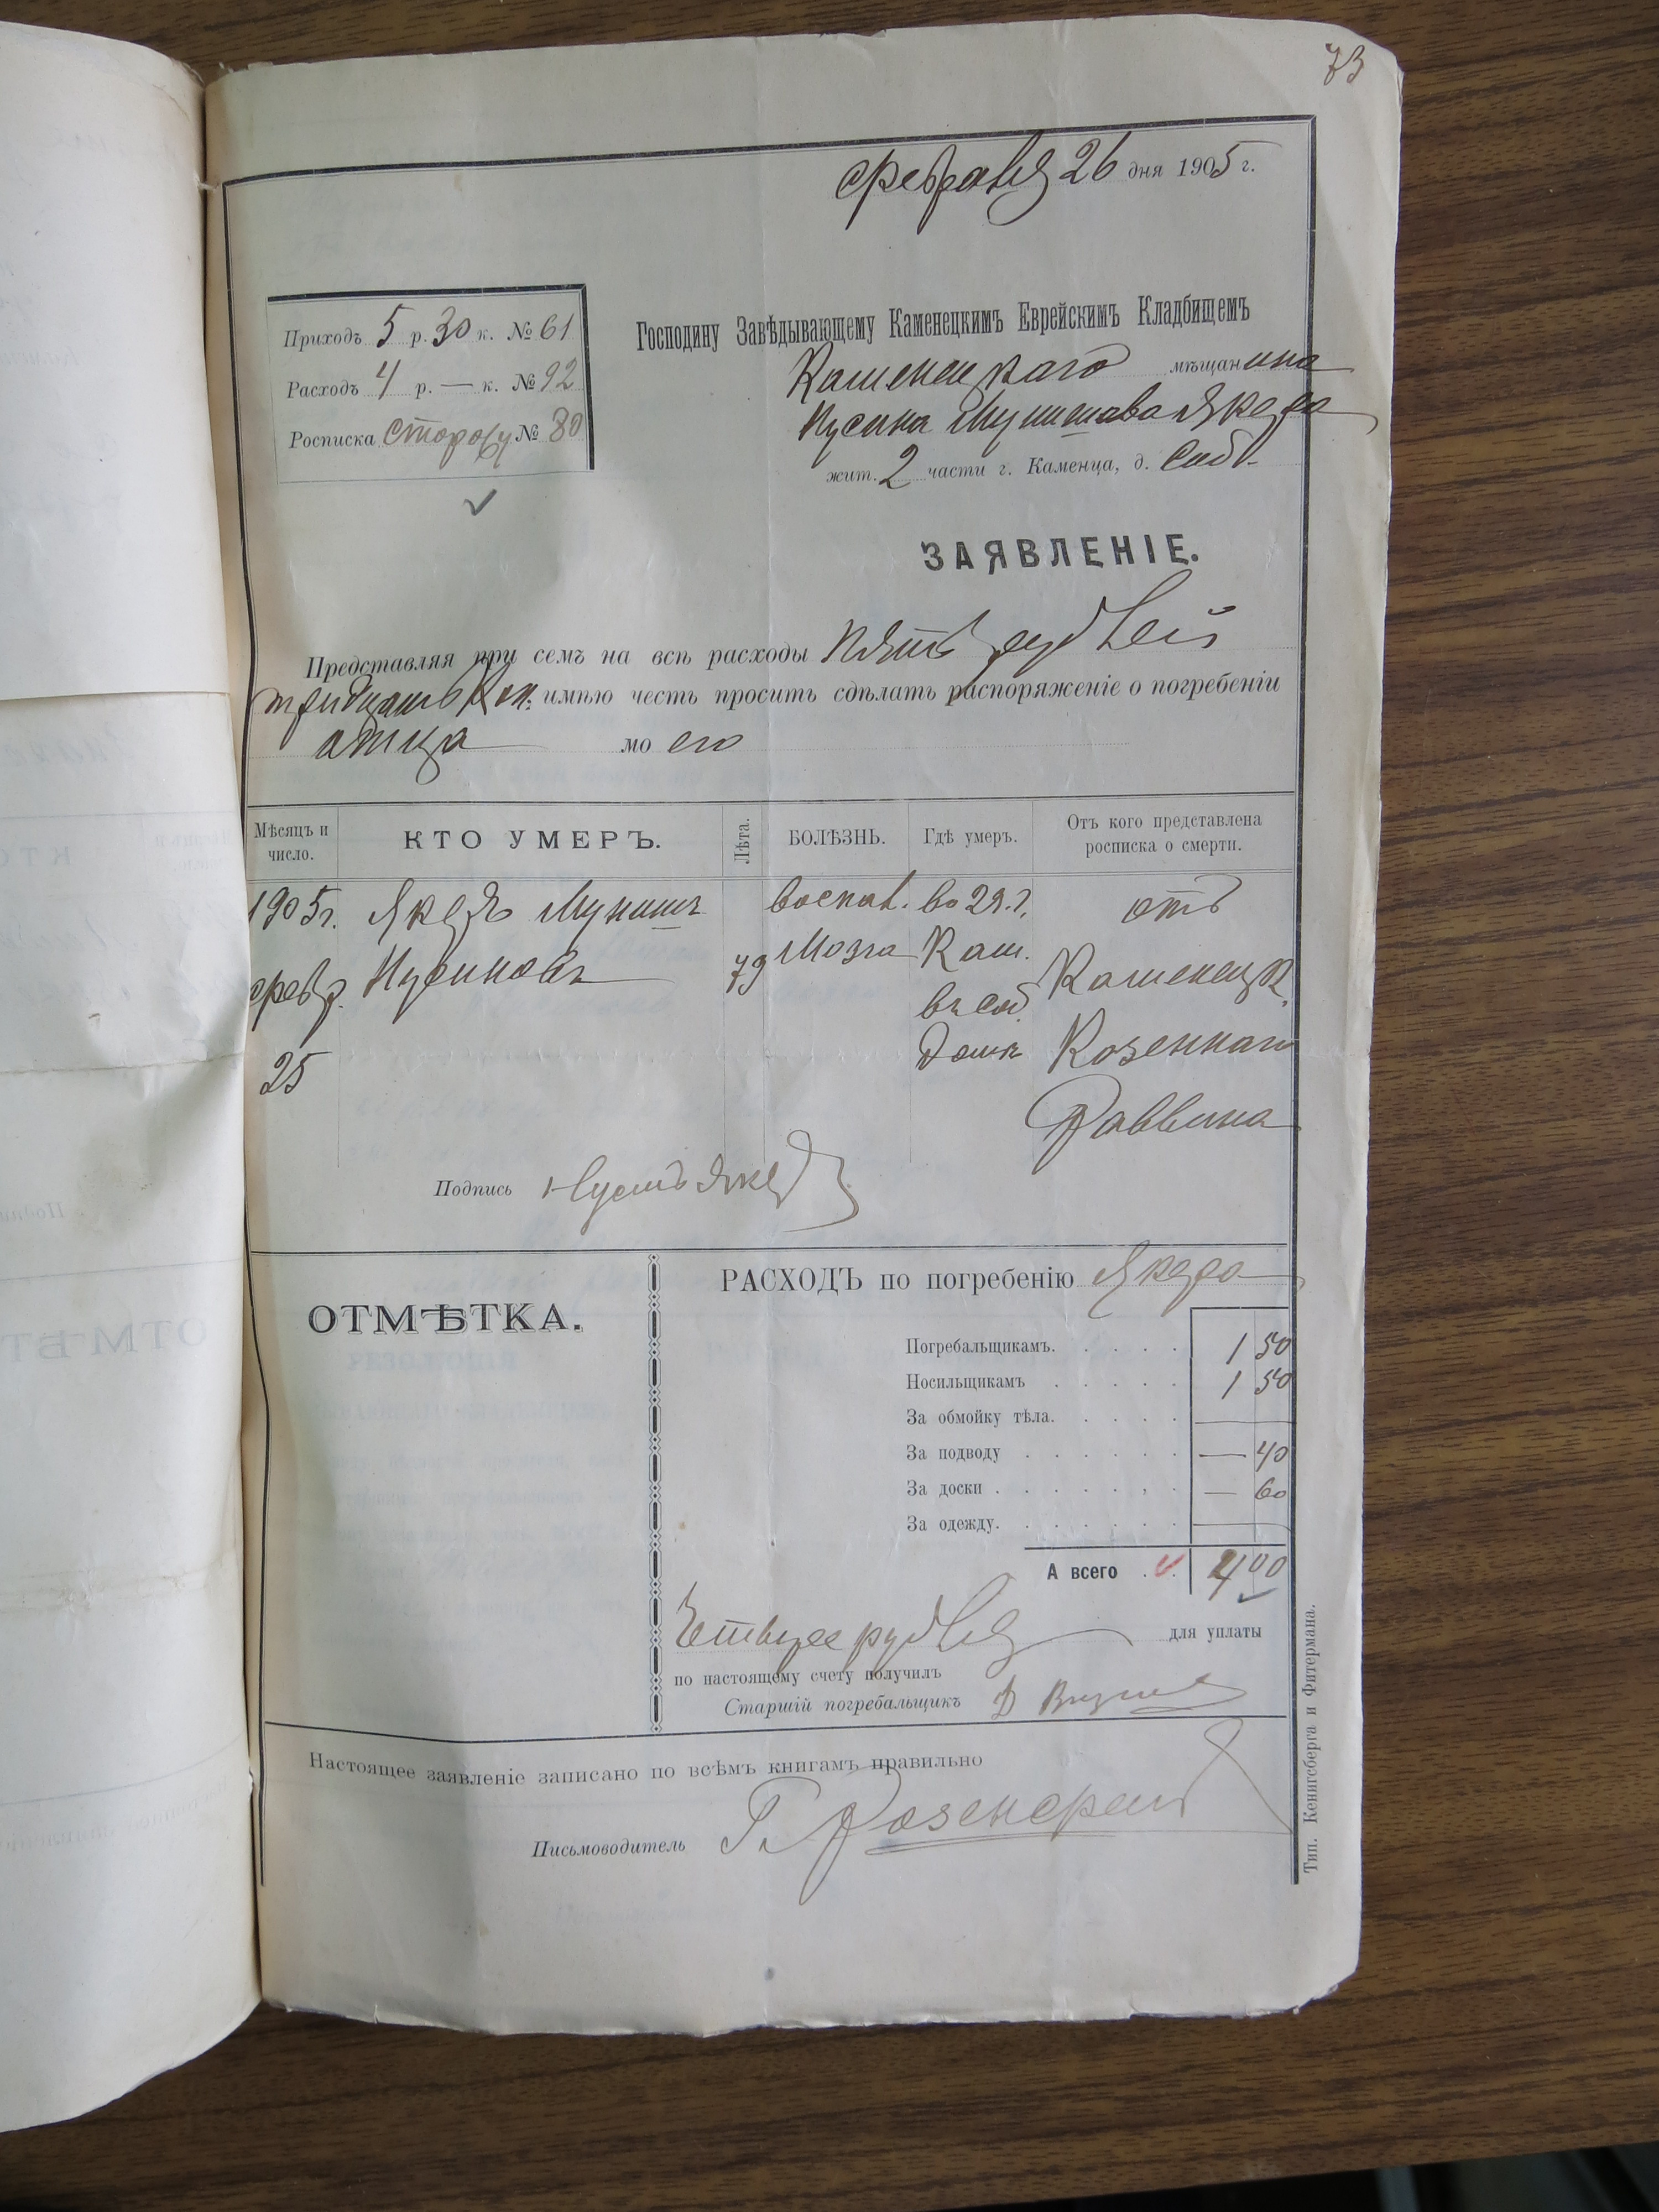 73
февраля 26 дня 1905 г.
Приходъ 5 р. 30 к. № 61
Расходъ 4 р. — к. № 92
Росписка сторожу № 80
Господину Завѣдывающему Каменецкимъ Еврейскимъ Кладбищемъ
Каменецкаго мѣщанина
Нусина Мунишова Якера
жит. 2 части г. Каменца, д. соб.
ЗАЯВЛЕНІЕ.
Представляя при семъ на всѣ расходы пять рублей
тридцать коп. имѣю честь просить сдѣлать распоряженіе о погребеніи
атца моего
Мѣсяцъ и число.
КТО УМЕРЪ.
Лѣта.
БОЛѢЗНЬ.
Гдѣ умеръ.
Отъ кого представлена росписка о смерти.
1905 г. Якеръ Мунишъ воспал. во 2 ч. г. отъ
февр. Нусиновъ 79 мозга Кам. Каменецк.
25 въ соб. домѣ Козеннаго
Раввина
Подпись Нусинъ Якеръ
ОТМѢТКА.
РАСХОДЪ по погребенію Якера
Погребальщикамъ. 1 50
Носильщикамъ 1 50
За обмойку тѣла. —
За подводу — 40
За доски — 60
За одежду. —
А всего 4 00
Четыре рубля для уплаты
по настоящему счету получилъ
Старшій погребальщикъ
Настоящее заявленіе записано по всѣмъ книгамъ правильно
Письмоводитель Г. Розенфельд
Тип. Кенигсберга и Фитермана.